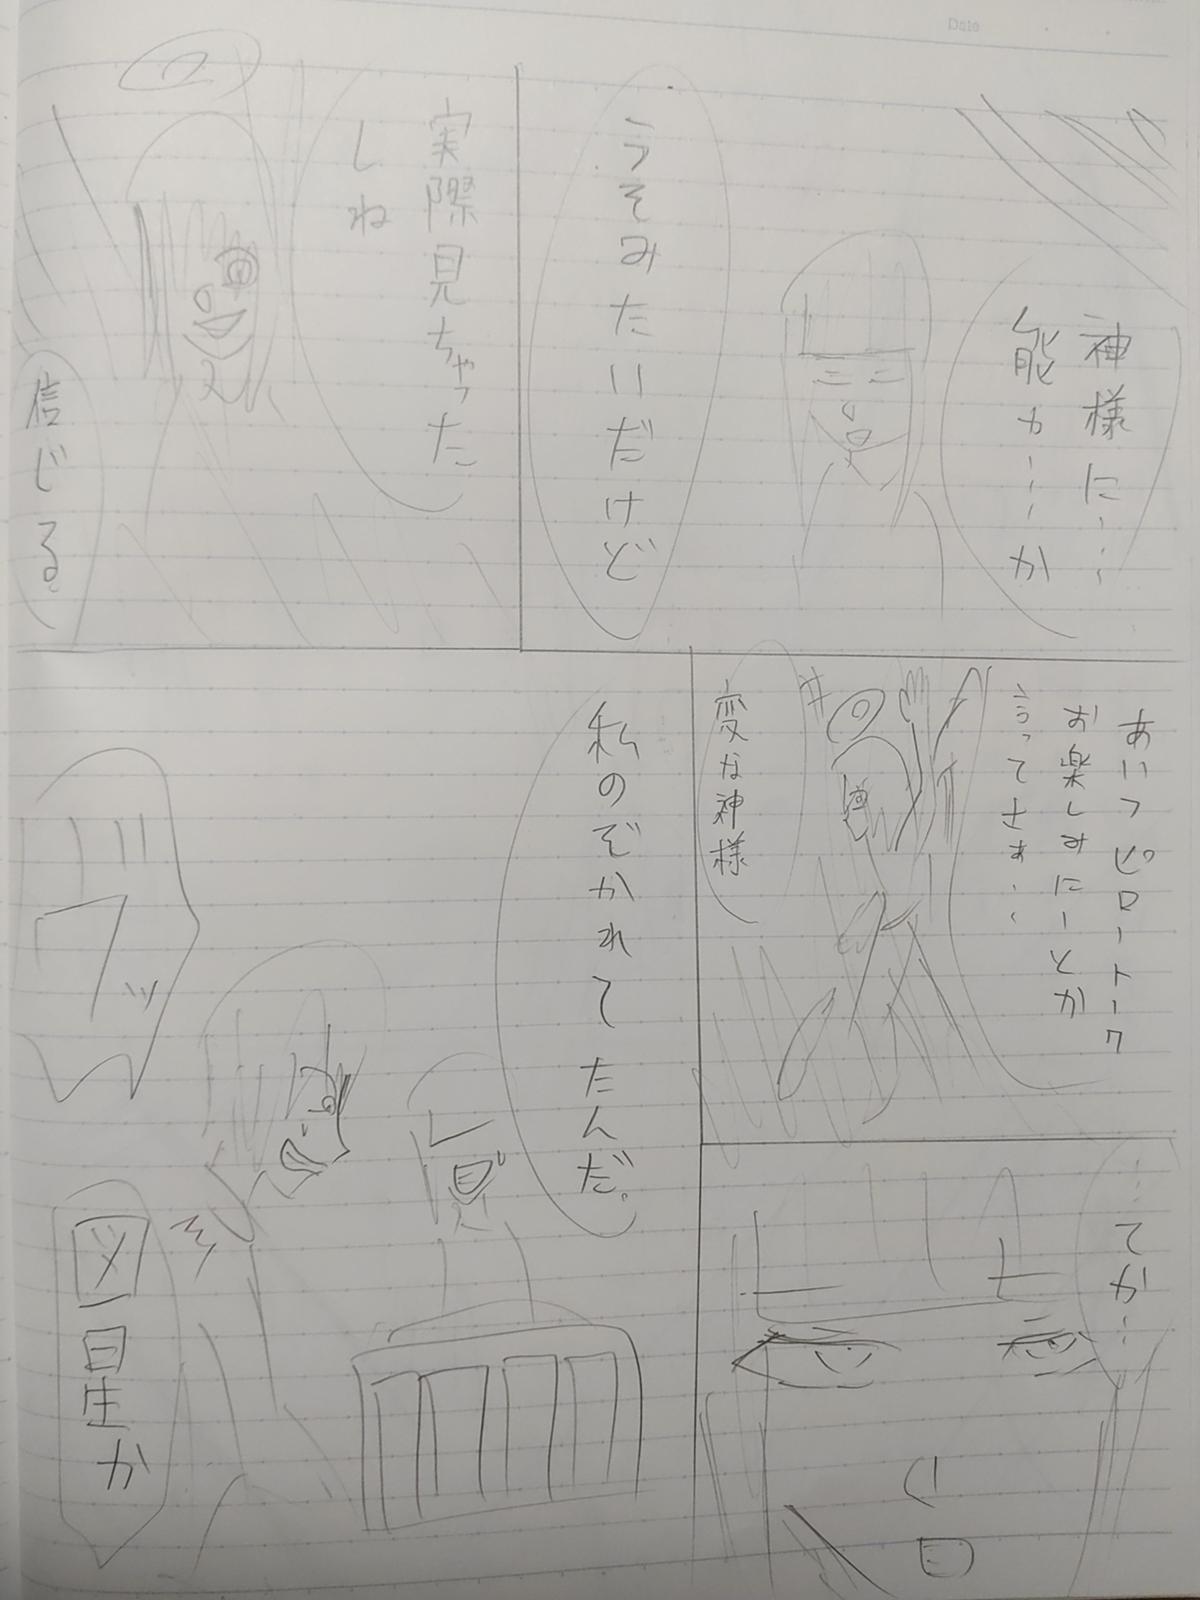 Date
神様に……
能力……か
うそみたいだけど
実際見ちゃった
しね
信じる。
あいつピロートーク
お楽しみにーとか
言ってさぁ…
変な神様
…てか…
私のぞかれてたんだ。
ワッ